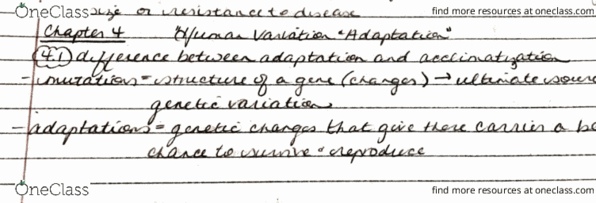 OneClass size or resistance to disease find more resources at oneclass.com
Chapter 4 Human Variation "Adaptation"
4.1 difference between adaptation and acclimatization
- mutations = structure of a gene (changes) → ultimate sour
genetic variation
- adaptations = genetic changes that give there carries a be
chance to survive & reproduce
OneClass find more resources at oneclass.com